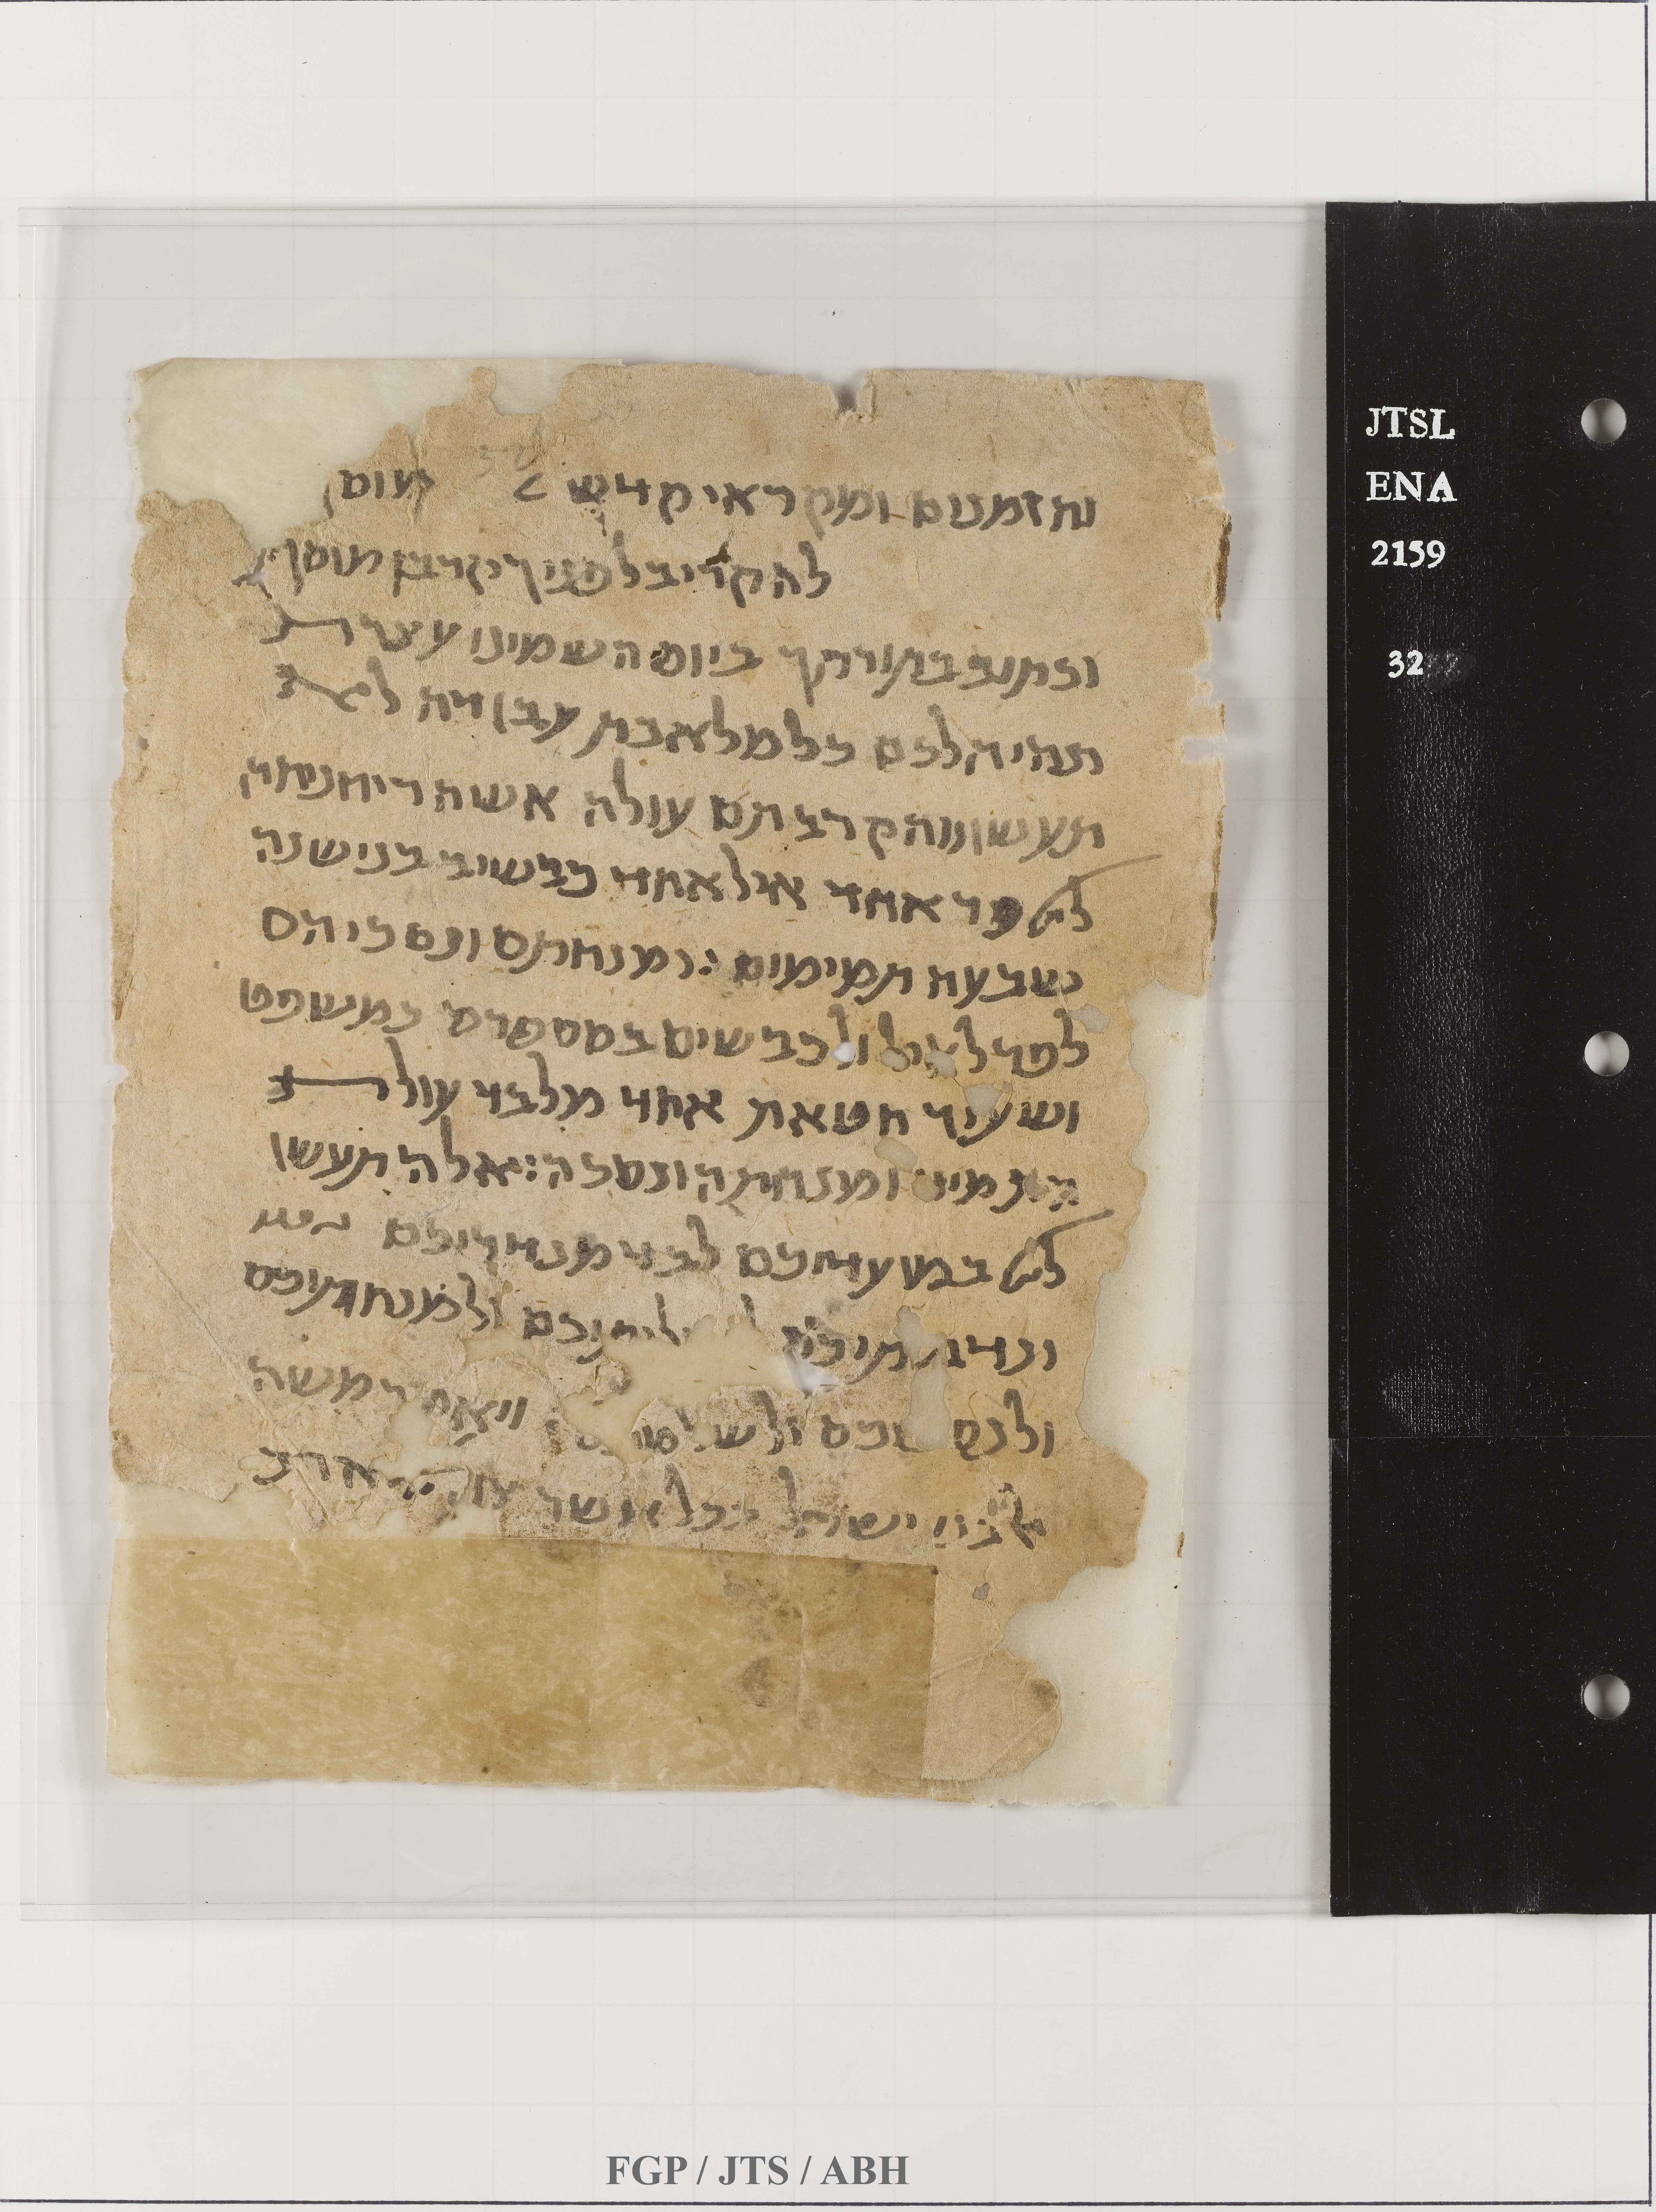 וחזמנים ומקראי קדש מוסף
להקריב לפניך קרבן מוסף
וכתוב בתורתך ביום השמיני עצרת
תהיה לכם כל מלאכת עבודה לא
תעשו והקרבתם עולה אשה ריח ניחח
לייי פר אחד איל אחד כבשים בני שנה
שבעה תמימים : ומנחתם ונסכיהם
לפר לאיל ולכבשים במספרם כמשפט
ושעיר חטאת אחד מלבד עולת
התמיד ומנחתה ונסכה : אלה תעשו
לייי במועדיכם לבד מנדריכם
ונדבתיכם ולמנחתיכם
ולנסכיכם ולשלמיכם ויאמר משה
אל בני ישראל ככל אשר
JTSL
ENA
2159
32
FGP / JTS / ABH